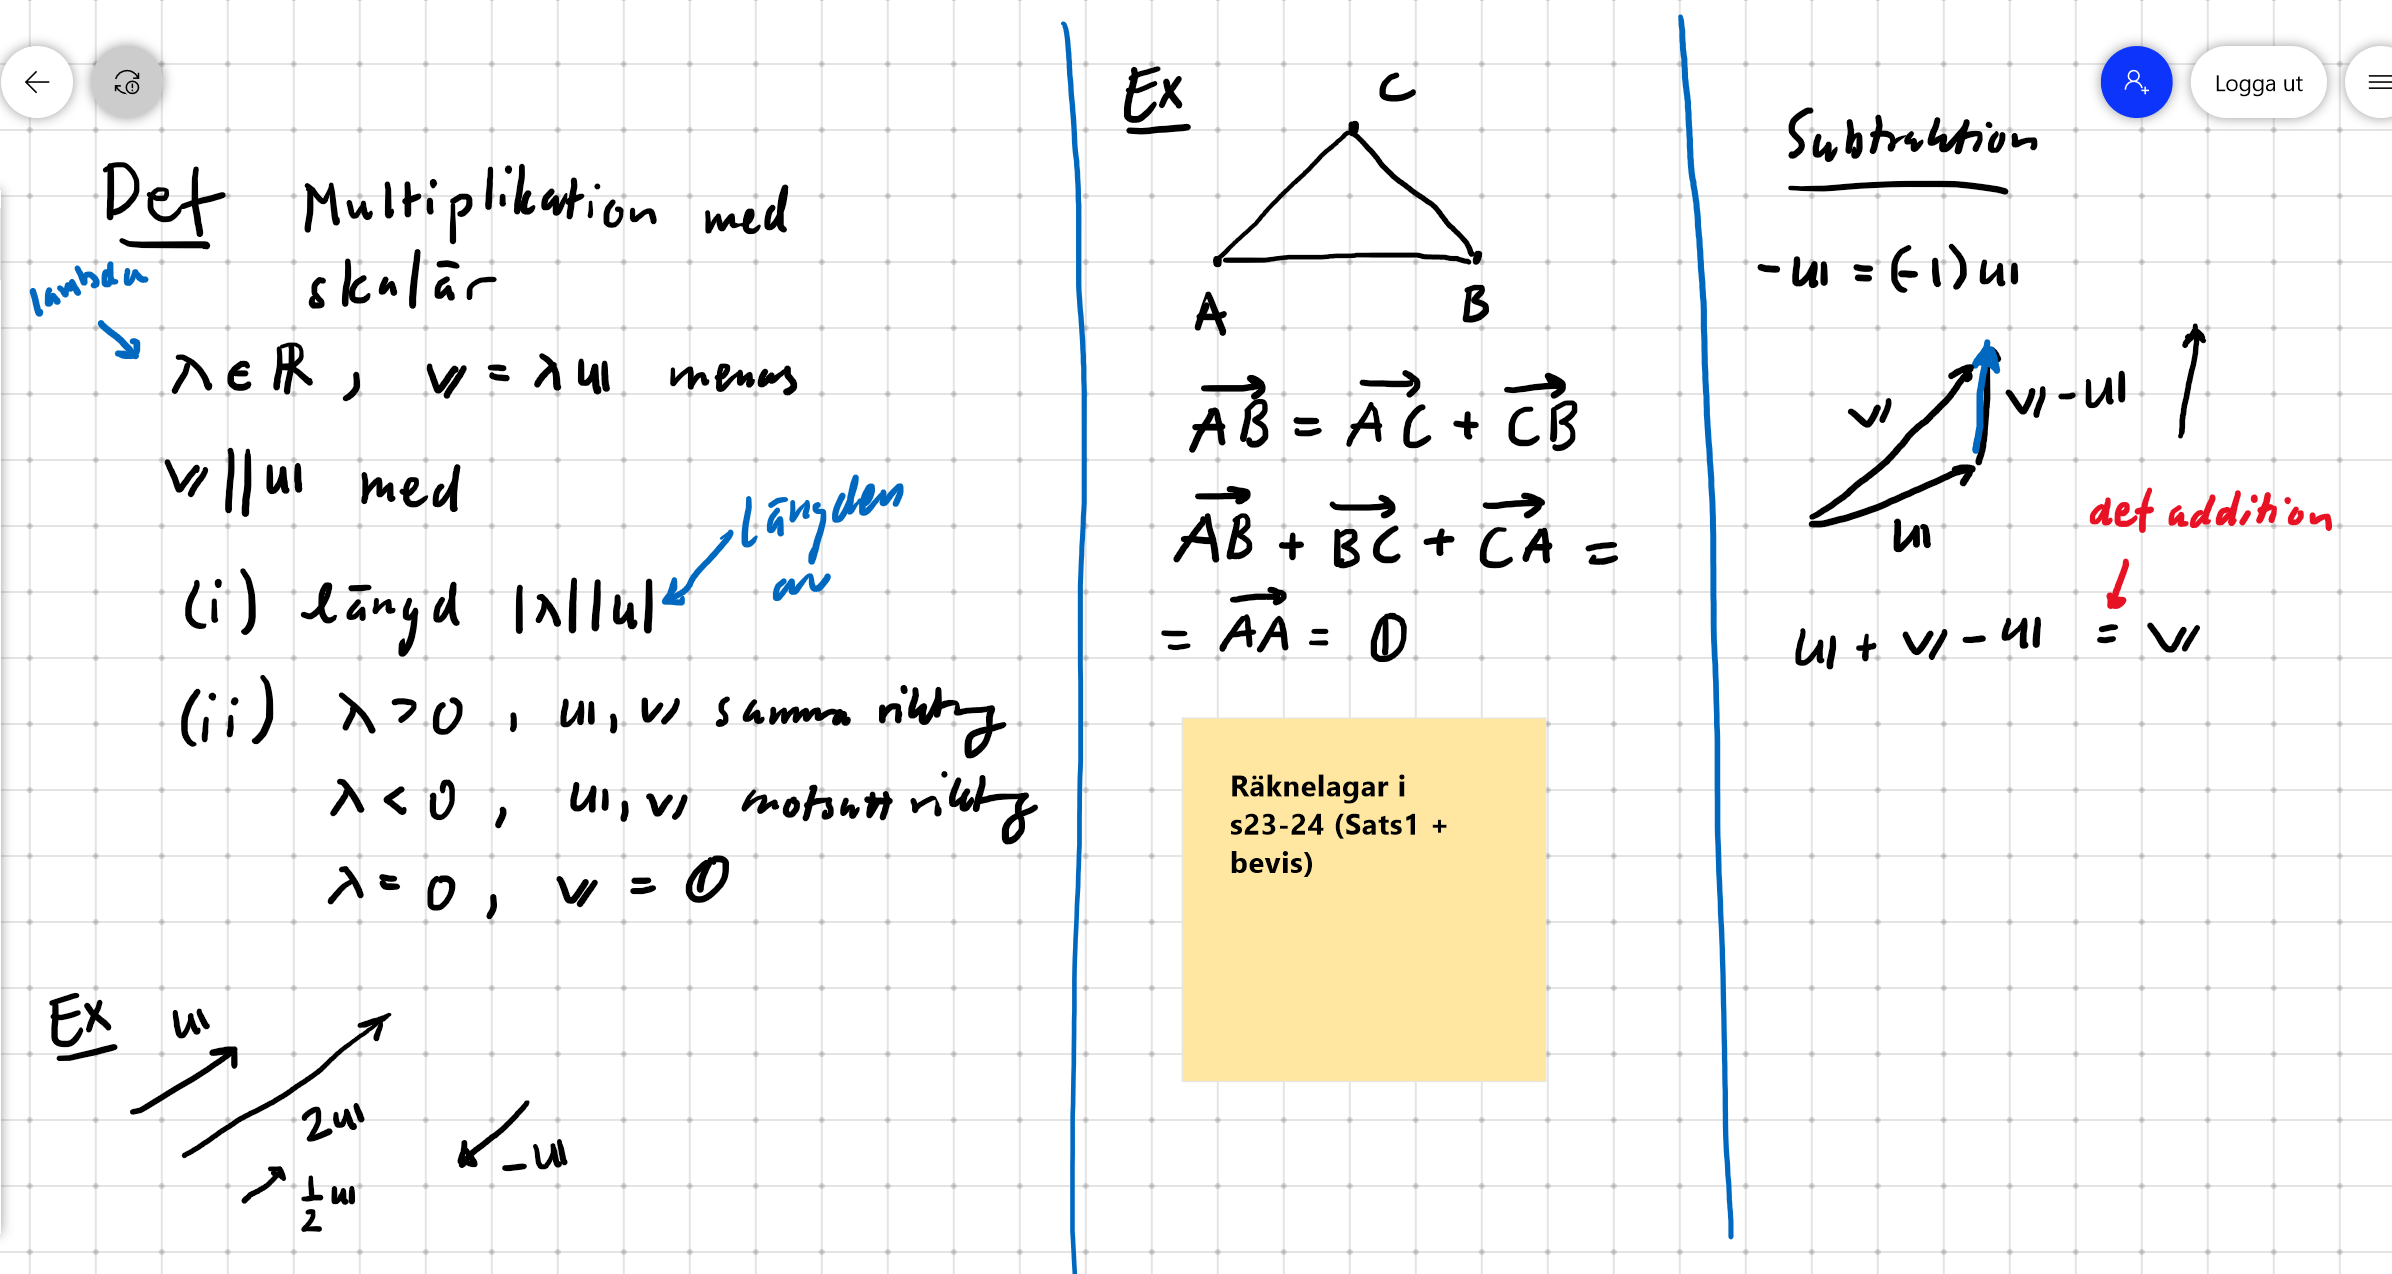 Def Multiplikation med
skalär
lambda
λ ∈ ℝ, 𝕧 = λ𝕦 menas
𝕧 || 𝕦 med
(i) längd |λ||u|
längden
av
(ii) λ > 0, 𝕦, 𝕧 samma riktng
λ < 0, 𝕦, 𝕧 motsatt riktng
λ = 0, 𝕧 = 𝟘
Ex
𝕦
2𝕦
½𝕦
-𝕦
Ex
C
A
B
→AB = →AC + →CB
→AB + →BC + →CA =
= →AA = 𝟘
Räknelagar i
s23-24 (Sats1 +
bevis)
Logga ut
Subtraktion
-𝕦 = (-1)𝕦
𝕧
𝕧 - 𝕦
𝕦
def addition
𝕦 + 𝕧 - 𝕦 = 𝕧